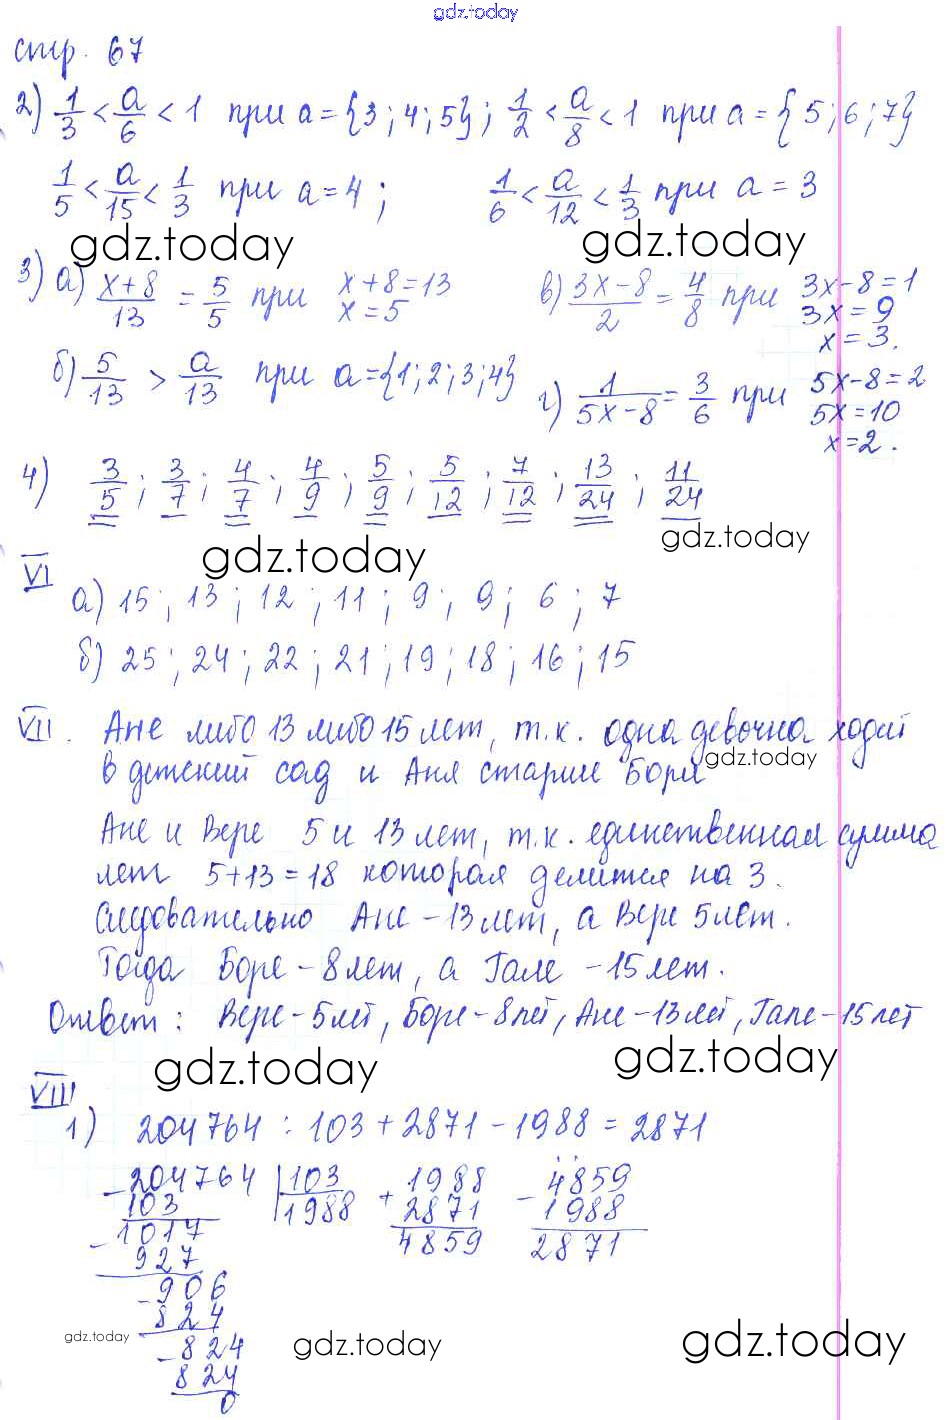 gdz.today
стр. 67
2) 1/3 < a/6 < 1 при a = {3; 4; 5}; 1/2 < a/8 < 1 при a = {5; 6; 7}
1/5 < a/15 < 1/3 при a = 4; 1/6 < a/12 < 1/3 при a = 3
gdz.today gdz.today
3) а) x+8/13 = 5/5 при x + 8 = 13
x = 5
в) 3x-8/2 = 4/8 при 3x-8 = 1
3x = 9
x = 3.
б) 5/13 > a/13 при a = {1; 2; 3; 4}
г) 1/5x-8 = 3/6 при 5x-8 = 2
5x = 10
x = 2.
4) 3/5; 3/7; 4/7; 4/9; 5/9; 5/12; 7/12; 13/24; 11/24
gdz.today gdz.today
VI
а) 15; 13; 12; 11; 9; 9; 6; 7
б) 25; 24; 22; 21; 19; 18; 16; 15
VII. Ане либо 13 либо 15 лет, т.к. одна девочка ходит
gdz.today
в детский сад и Аня старше Бори
Ане и Вере 5 и 13 лет, т.к. единственная сумма
лет 5+13=18 которая делится на 3.
Следовательно Ане - 13 лет, а Вере 5 лет.
Тогда Боре - 8 лет, а Гале - 15 лет.
Ответ: Вере - 5 лет, Боре - 8 лет, Ане - 13 лет, Гале - 15 лет
gdz.today gdz.today
VIII
1) 204764 : 103 + 2871 - 1988 = 2871
-204764 | 103
103 | 1988
-1017
927
-906
824
-824
824
0
+ 1988
2871
4859
- 4859
1988
2871
gdz.today gdz.today gdz.today